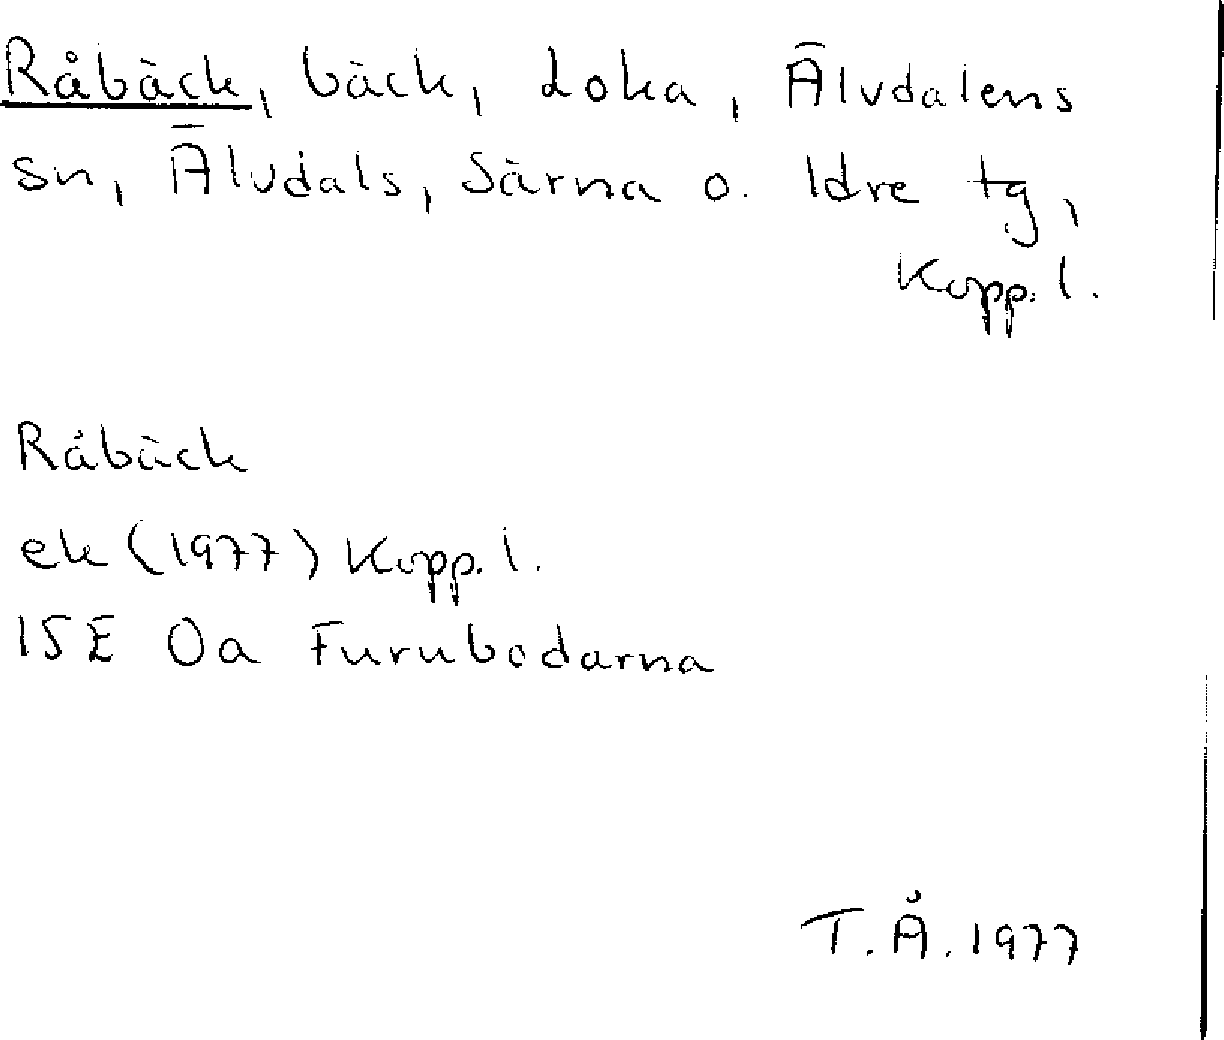 Råbäck, bäck, Loka, Älvdalens
sn, Älvdals, Särna o. Idre tg,
Kopp. l.
Råbäck
ek (1977) Kopp. l.
15E 0a Furubodarna
T. Å. 1977